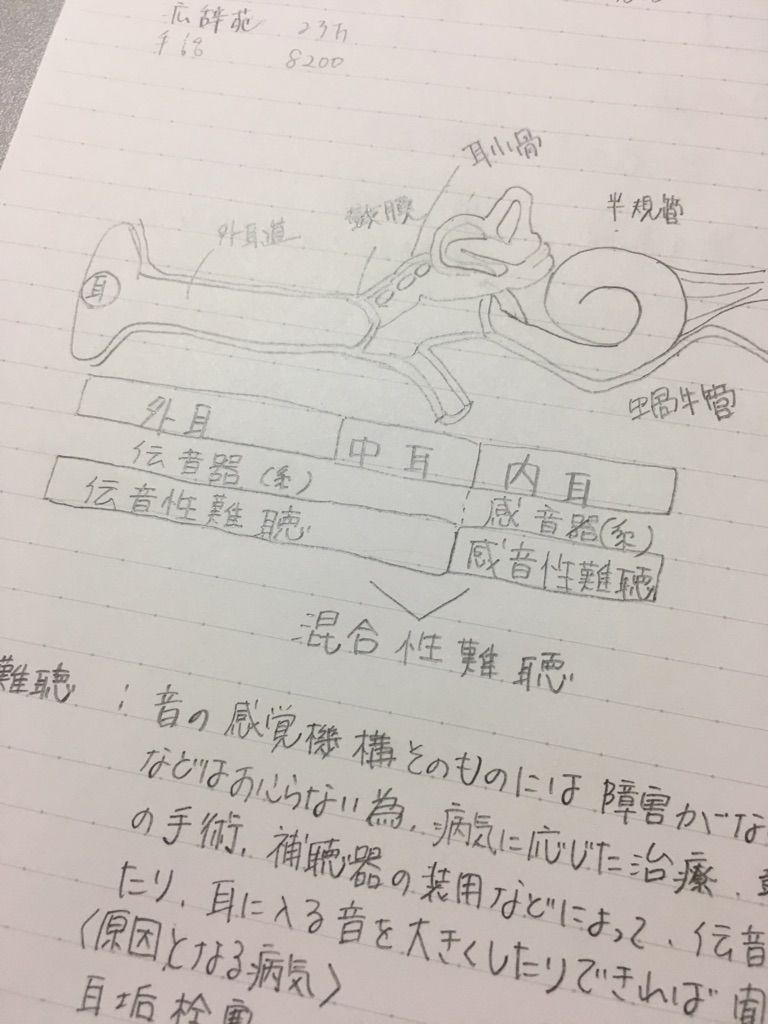 広辞苑 23万
手話 8200
耳小骨
半規管
鼓膜
外耳道
耳
蝸牛管
外耳 中耳 内耳
伝音器(系) 感音器(系)
伝音性難聴 感音性難聴
混合性難聴
難聴：音の感覚機構そのものには障害がな
などはおこらない為、病気に応じた治療、
の手術、補聴器の装用などによって、伝音
たり、耳に入る音を大きくしたりできれば
〈原因となる病気〉
耳垢栓塞